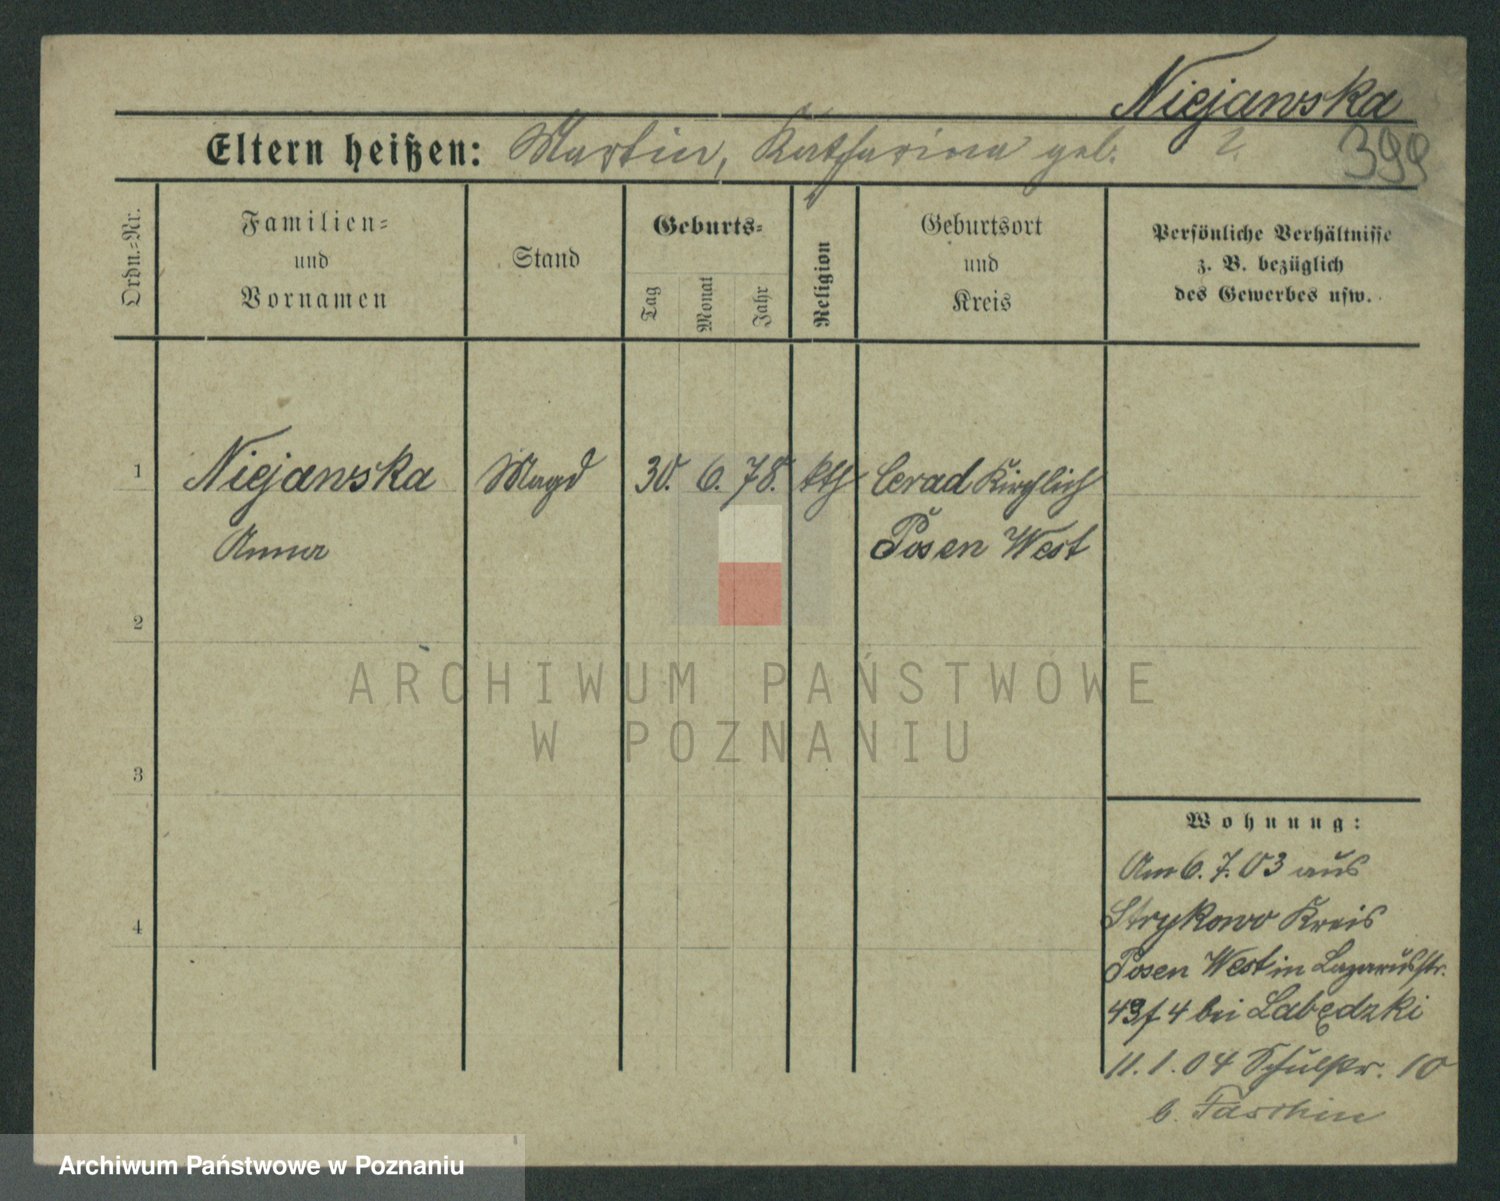 Niejawska
399
Eltern heißen: Martin, Katharina geb. ?.
Ordn.=Nr.
Familien=
und
Vornamen
Stand
Geburts=
Tag
Monat
Jahr
Religion
Geburtsort
und
Kreis
Persönliche Verhältnisse
z. B. bezüglich
des Gewerbes usw.
1
Niejawska Magd 30. 6. 78. kth Cerad Kirchlich
Anna Posen West
2
ARCHIWUM PAŃSTWOWE
W POZNANIU
3
Wohnung:
4
Am 6. 7. 03 aus
Strykowo Kreis
Posen West in Lazarusstr.
43 f 4 bei Labędzki
11. 1. 04 Schulstr. 10
b.
Archiwum Państwowe w Poznaniu